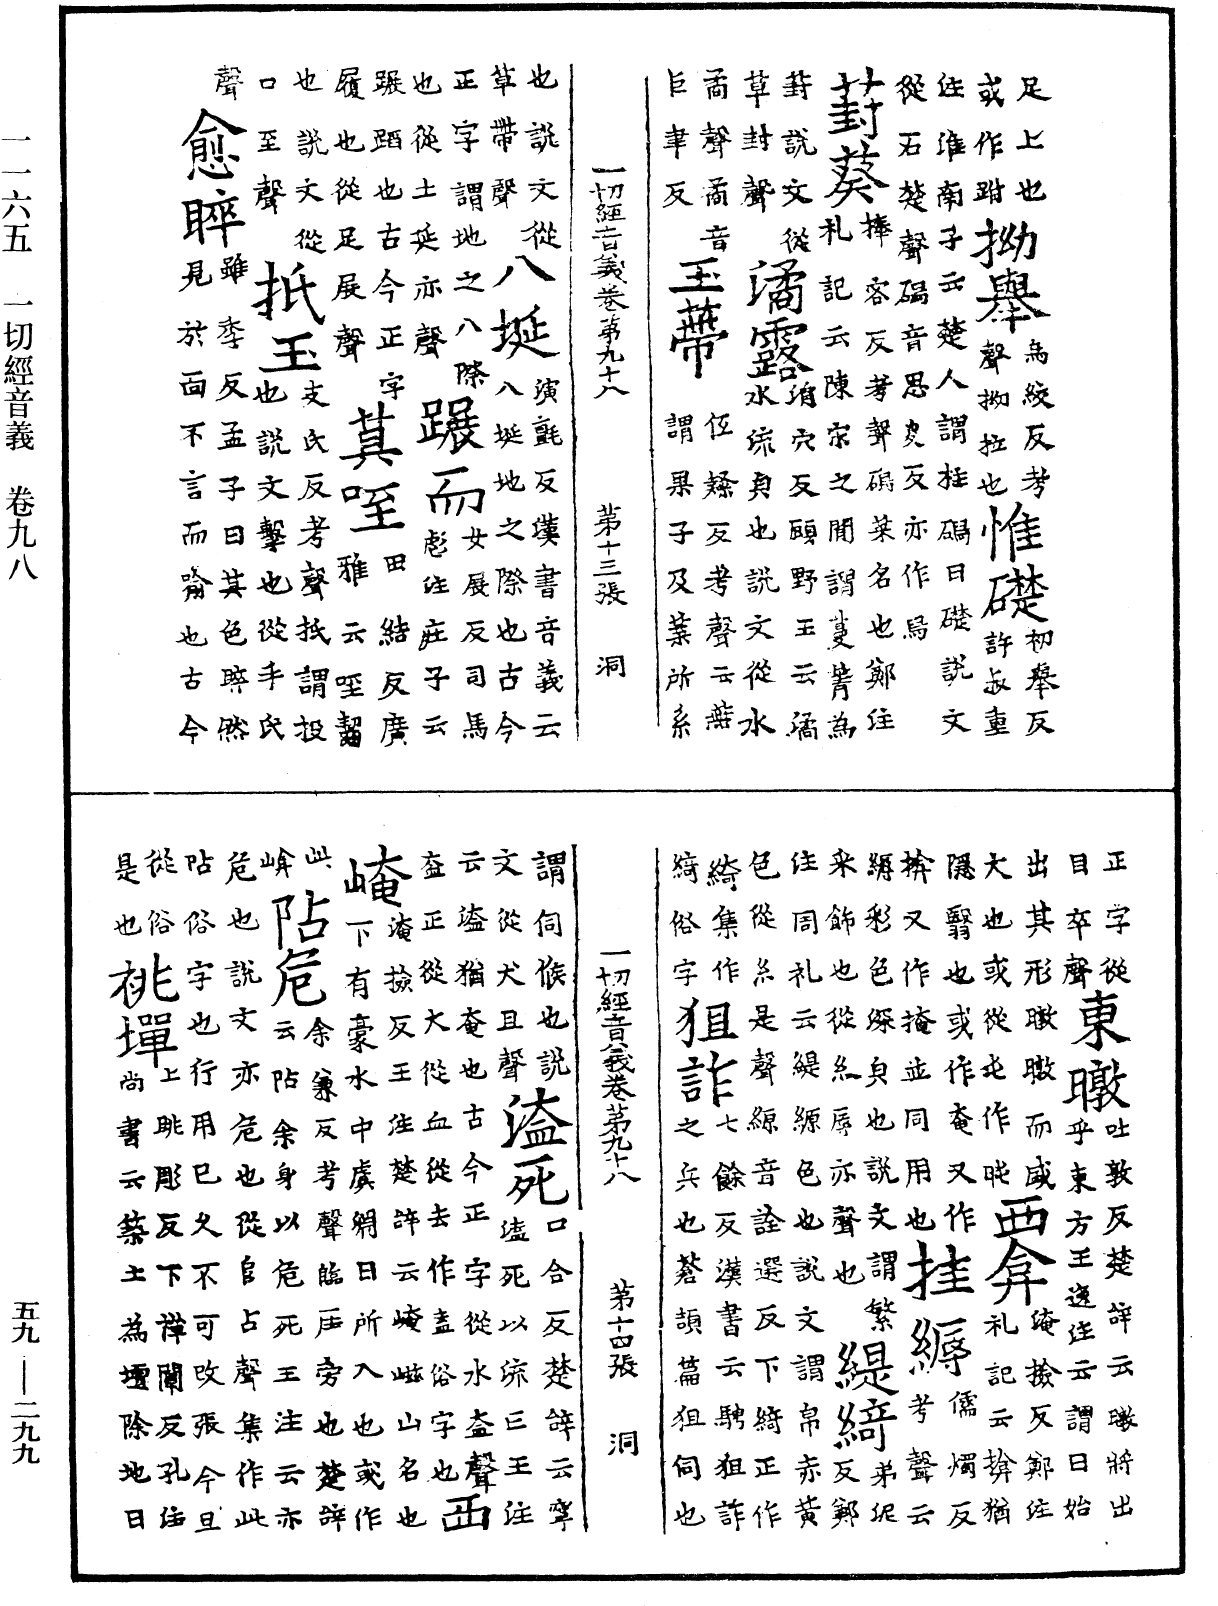 一一六五　一切經音義　卷九八
足上也
或作跗拗舉烏絞反考
聲拗拉也惟礎初舉反
許叔重
注淮南子云楚人謂柱碣曰礎說文
從石楚聲碣音思亦反亦作舄
葑葵捧容反考聲碣菜名也鄭注
札記云陳宋之間謂蔓菁為
葑說文從
草封聲潏露涓穴反顧野王云潏
水流皃也說文從水
矞聲矞音
巨聿反玉蔕低㛴反考聲云蔕
謂果子及葉所系
一切經音義卷第九十八　第十三張　洞
也說文從
草帶聲八埏演氈反漢書音義云
八埏地之際也古今
正字謂地之八際
也從土延亦聲蹍而女展反司馬
彪注莊子云
蹍蹈也古今正字
履也從足展聲萁咥田結反廣
雅云咥齧
也說文從
口至聲抵玉支氏反考聲抵謂投
也說文擊也從手氏
聲愈睟雖季反孟子曰其色睟然
見於面不言而喻也古今
正字從
目卒聲東暾吐敦反楚辞云暾將出
乎東方王逸注云謂日始
出其形暾暾而盛
大也或從屯作旽西弇淹撿反鄭注
礼記云揜猶
隱翳也或作奄又作
揜又作掩並同用也挂縟儒燭反
考聲云
縟彩色深皃也說文謂繁
采飾也從糸辱亦聲也緹綺弟泥反鄭
注周礼云緹縓色也說文謂帛赤黃
色從糸是聲縓音詮選反下綺正作
綺集作
綺俗字狙詐七餘反漢書云騁狙詐
之兵也蒼頡篇狙伺也
一切經音義卷第九十八　第十四張　洞
謂伺候也說
文從犬且聲溘死口合反楚辞云寧
溘死以流亡王注
云溘猶奄也古今正字從水盍聲
盍正從大從血從去作盖俗字也西
崦淹撿反王注楚辞云崦嵫山名也
下有豪水中虞翻日所入也或作
此
㟏阽危余兼反考聲臨厓旁也楚辞
云阽余身以危死王注云亦
危也說文亦危也從𨸏占聲集作此
阽俗字也行用已久不可改張今且
從俗
是也祧墠上眺彫反下禅闡反孔注
尚書云築土為壇除地曰
五九——二九九